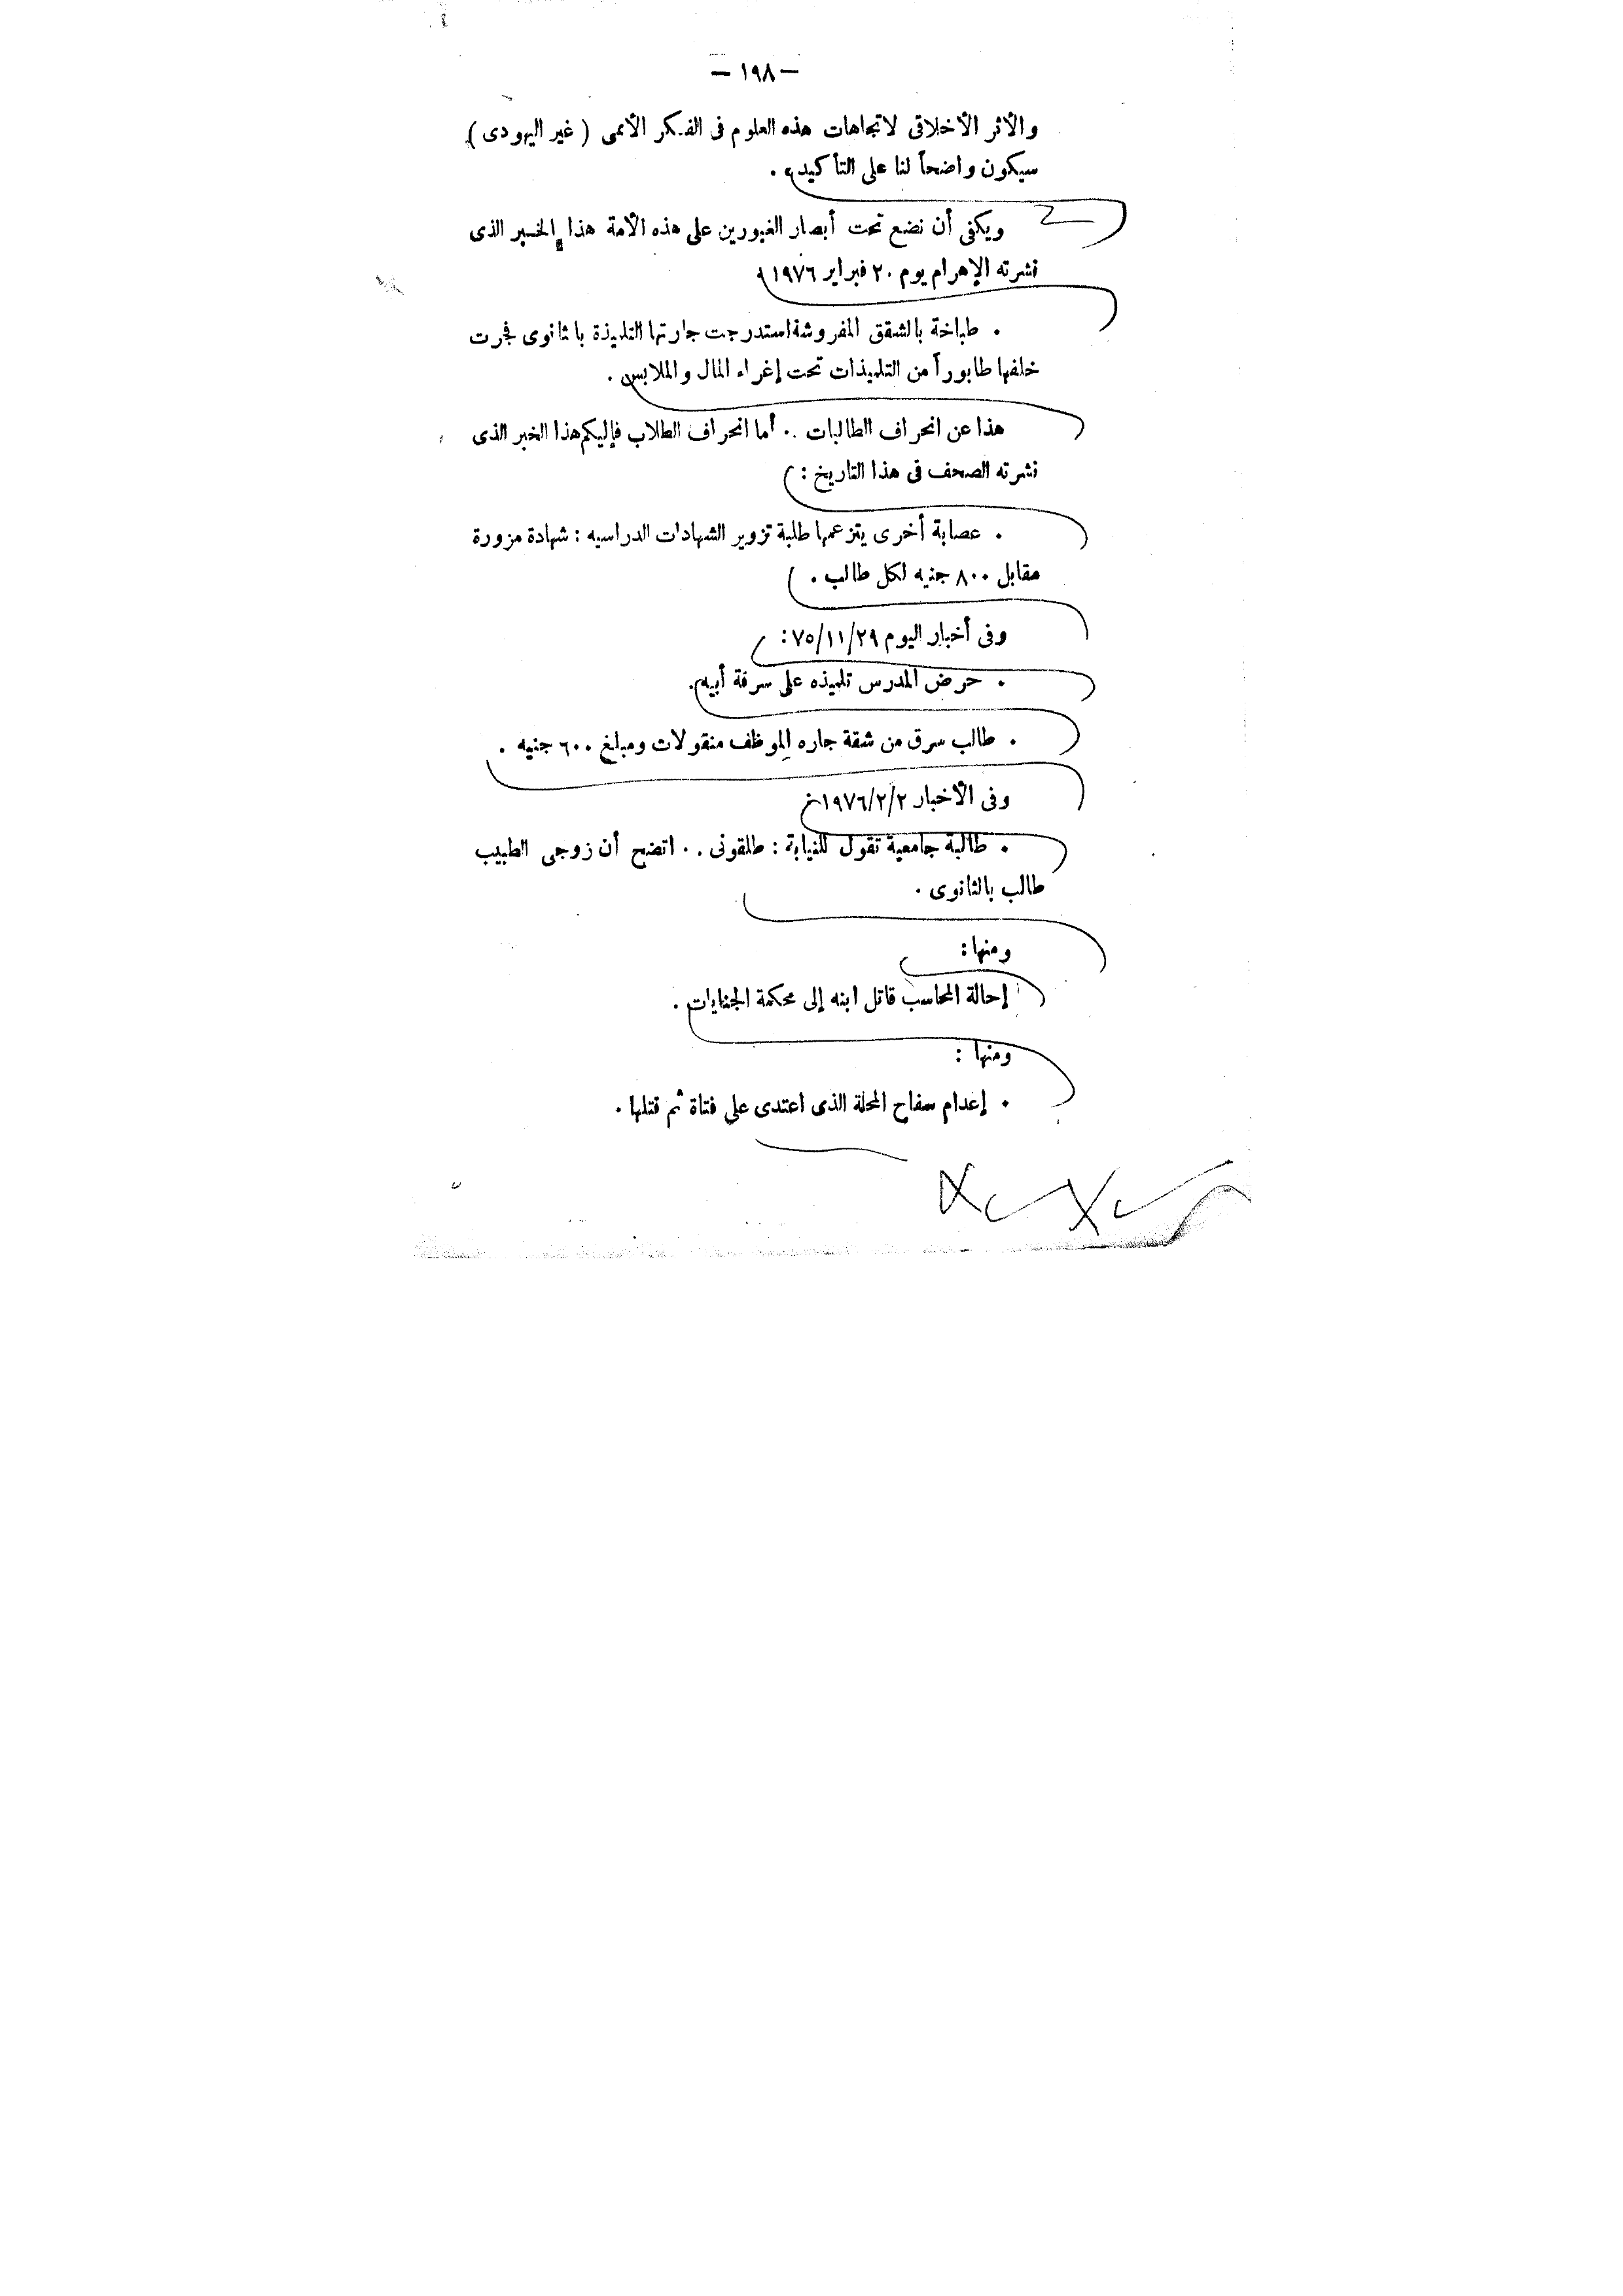 — ١٩٨ —
والأثر الأخلاقى لاتجاهات هذه العلوم فى الفكر الأممى ( غير اليهودى )
سيكون واضحاً لنا على التأكيد» .
ويكفى أن نضع تحت أبصار الغيورين على هذه الأمة هذا الخبر الذى
نشرته الإهرام يوم ٢٠ فبراير ١٩٧٦
• طباخة بالشقق المفروشة استدرجت جارتها التلميذة بالثانوى فجرت
خلفها طابوراً من التلميذات تحت إغراء المال والملابس .
هذا عن انحراف الطالبات .. أما انحراف الطلاب فإليكم هذا الخبر الذى
نشرته الصحف فى هذا التاريخ :
• عصابة أخرى يتزعمها طلبة تزوير الشهادات الدراسيه : شهادة مزورة
مقابل ٨٠٠ جنيه لكل طالب .
وفى أخبار اليوم ٧٥/١١/٢٩ :
• حرض المدرس تلميذه على سرقة أبيه.
• طالب سرق من شقة جاره الموظف منقولات ومبلغ ٦٠٠ جنيه .
وفى الأخبار ١٩٧٦/٢/٢
• طالبة جامعية تقول للنيابة : طلقونى .. اتضح أن زوجى الطبيب
طالب بالثانوى .
ومنها :
إحالة المحاسب قاتل ابنه إلى محكمة الجنايات .
ومنها :
• إعدام سفاح المحلة الذى اعتدى على فتاة ثم قتلها .